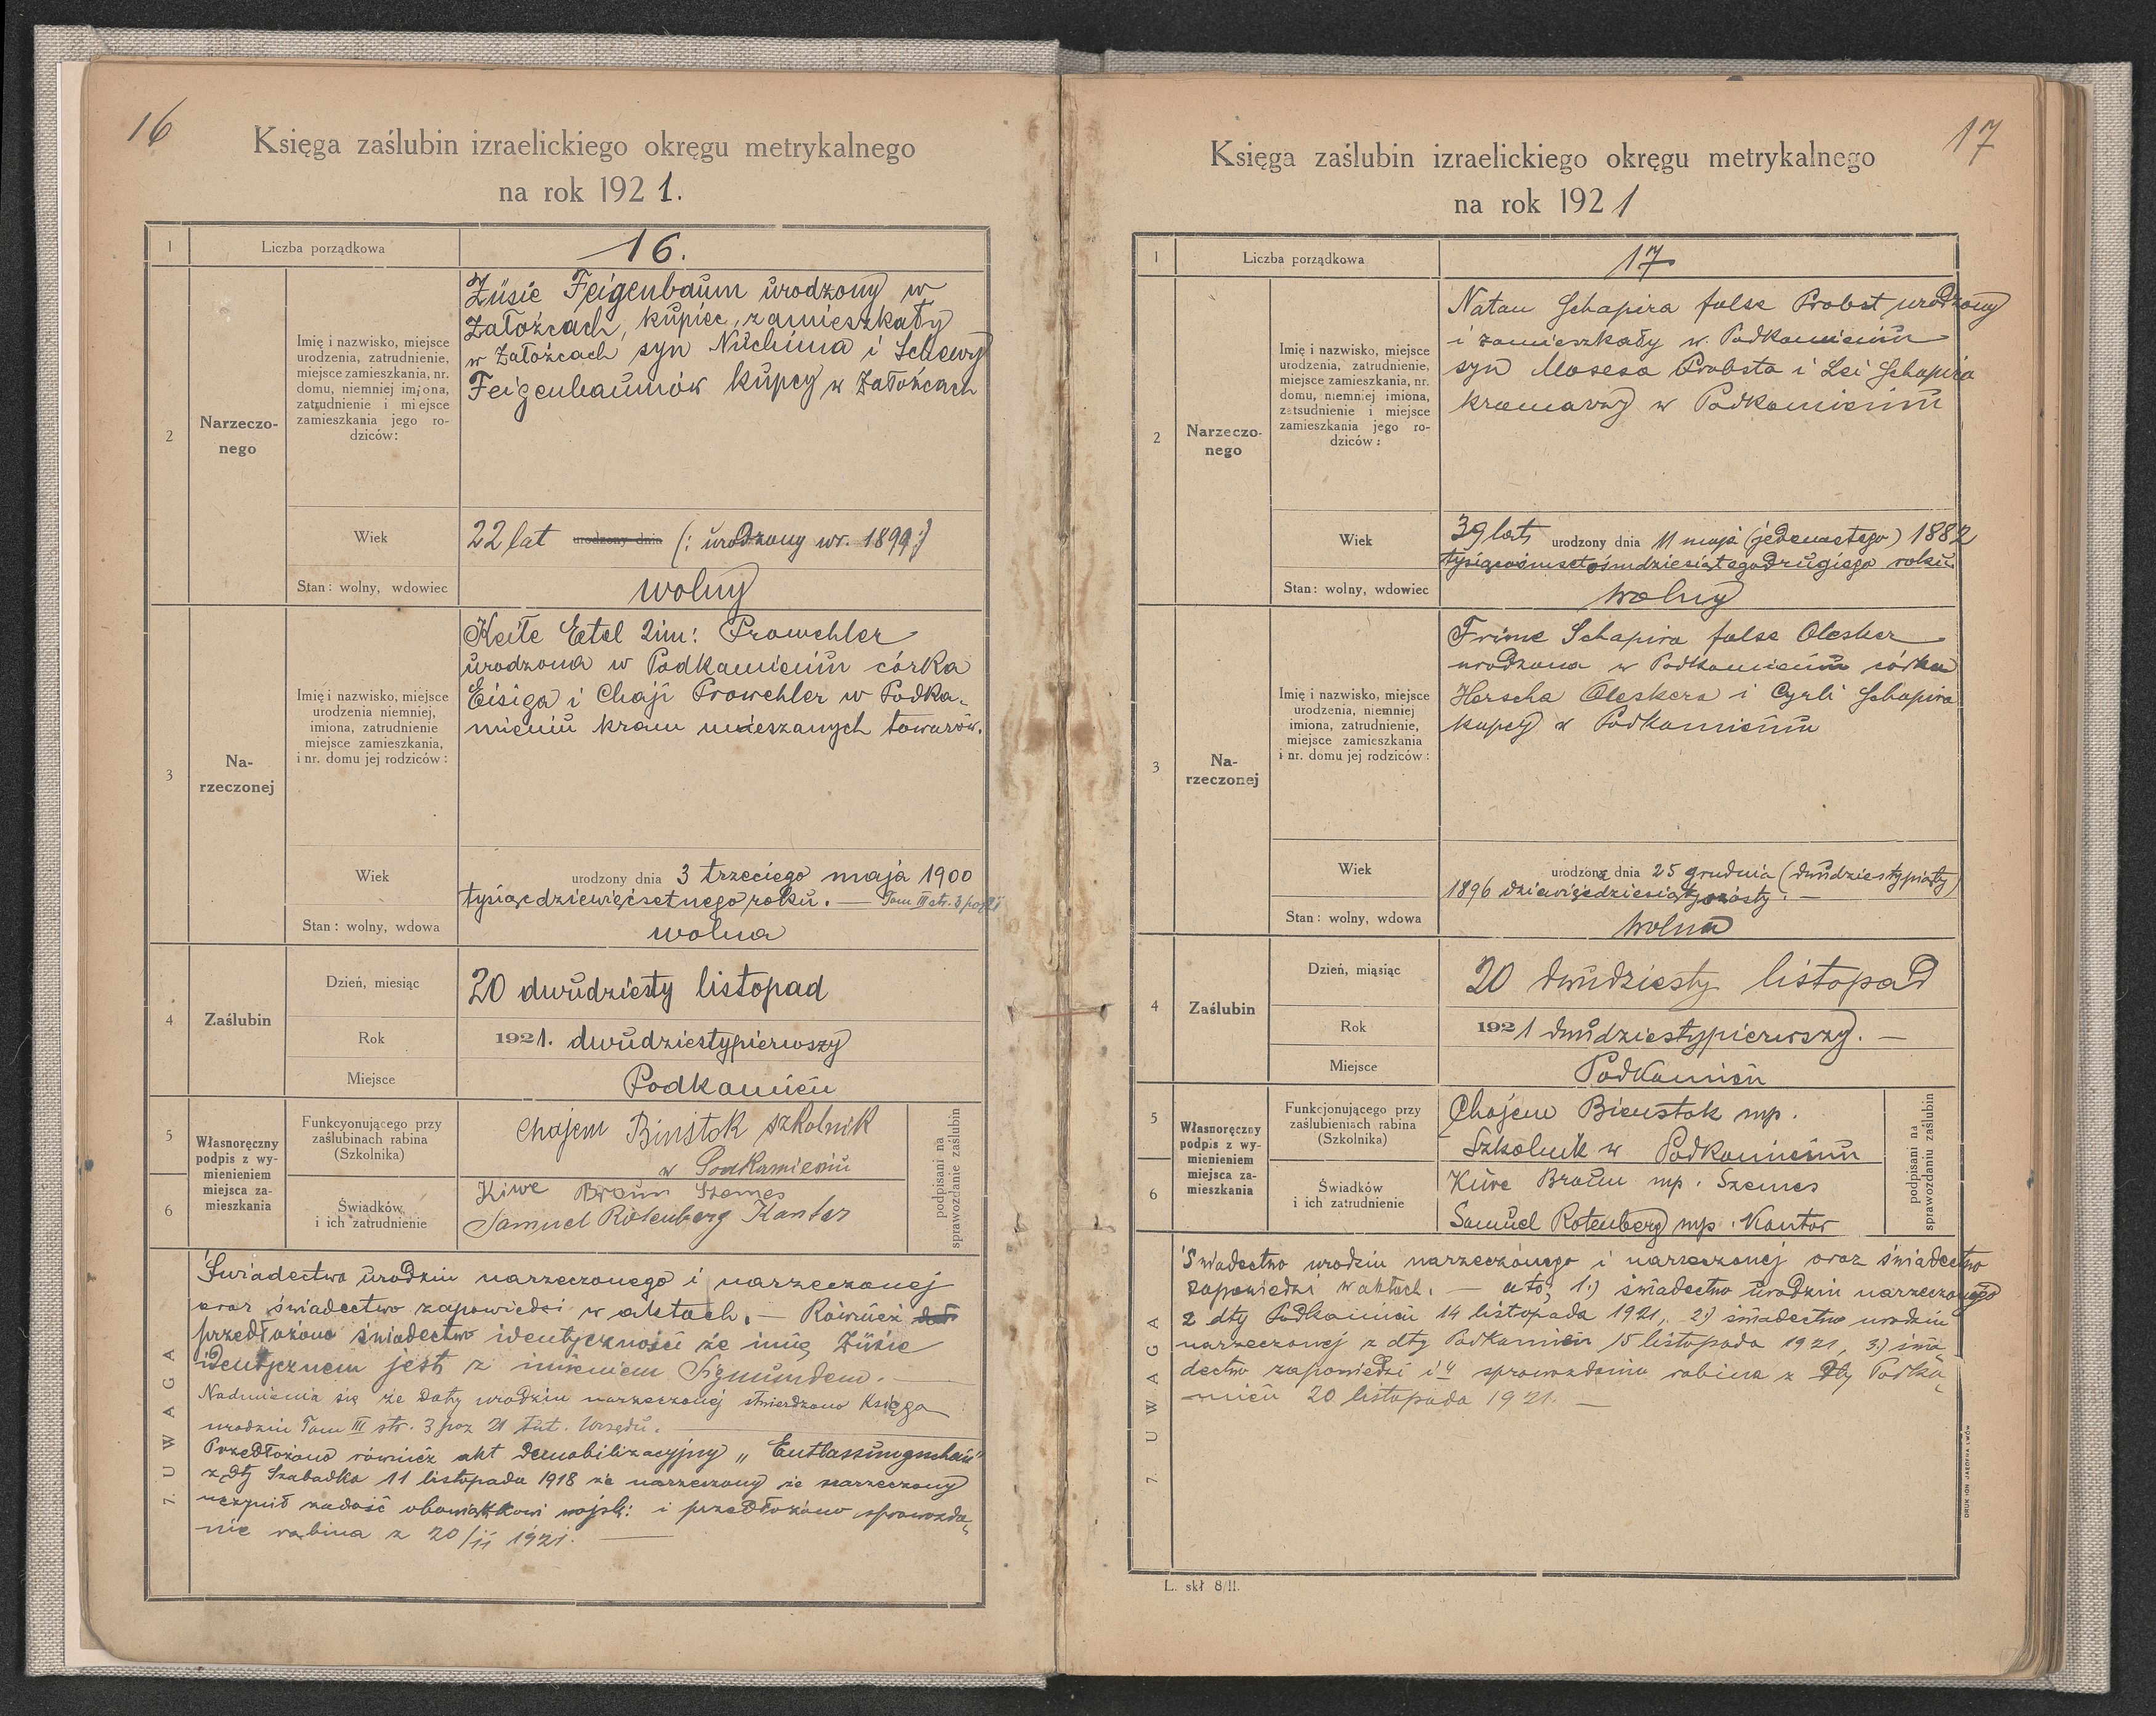 16
Księga zaślubin izraelickiego okręgu metrykalnego
na rok 1921.
1
Liczba porządkowa
16.
2
Narzeczo-
nego
Imię i nazwisko, miejsce
urodzenia, zatrudnienie,
miejsce zamieszkania, nr.
domu, niemniej imjona,
zatrudnienie i miejsce
zamieszkania jego ro-
dziców:
Züsie Feigenbaum urodzony w
Założcach, kupiec, zamieszkały
w Założcach syn Nüchima i Schewy
Feigenbaumów kupcy w Założcach
Wiek
22 lat urodzony dnia (: urodzony wr. 1899:)
Stan: wolny, wdowiec
wolny
3
Na-
rzeczonej
Imię i nazwisko, miejsce
urodzenia niemniej,
imiona, zatrudnienie
miejsce zamieszkania,
i nr. domu jej rodziców:
Keile Etel 2im: Prowehler
urodzona w Podkamieniu córka
Eisiga i Chaji Prowehler w Podka-
mieniu kram mieszanych towarów.
Wiek
urodzony dnia 3 trzeciego maja 1900
tysiącdziewięćsetnego roku. — Tom III str. 3
Stan: wolny, wdowa
wolna
4
Zaślubin
Dzień, miesiąc
20 dwudziesty listopad
Rok
1921. dwudziestypierwszy
Miejsce
Podkamień
5
6
Własnoręczny
podpis z wy-
mienieniem
miejsca za-
mieszkania
Funkcyonującego przy
zaślubinach rabina
(Szkolnika)
Chajem Binstok szkolnik
w Podkamieniu
Świadków
i ich zatrudnienie
Kiwe Braun Szames
Samuel Rotenberg Kantor
podpisani na
sprawozdanie zaślubin
7. UWAGA
Świadectwo urodzin narzeczonego i narzeczonej
oraz świadectwo zapowiedzi w aktach. — Również
przedłożono świadectwo identyczności że imię Züsie
identycznem jest z imieniem Sigmundem. —
Nadmienia się że daty urodzin narzeczonej stwierdzono Księgą
urodzin Tom III str. 3 poz 21 tut. Urzędu.
Przedłożono również akt demobilizacyjny „Entlassungschein"
z dty Szabadka 11 listopada 1918 że narzeczony że narzeczony
uczynił zadość obowiązkowi wojsk: i przedłożono sprawozda-
nie rabina z 20/11 1921. —
17
Księga zaślubin izraelickiego okręgu metrykalnego
na rok 1921
1
Liczba porządkowa
17
2
Narzeczo-
nego
Imię i nazwisko, miejsce
urodzenia, zatrudnienie,
miejsce zamieszkania, nr.
domu, niemniej imiona,
zatsudnienie i miejsce
zamieszkania jego ro-
dziców:
Natan Schapira false Probst urodzony
i zamieszkały w Podkamieniu
syn Mosesa Probsta i Lei Schapira
kramarzy w Podkamieniu
Wiek
39 lat urodzony dnia 11 maja (jedenastego) 1882
tysiącośmsetośmdziesiątegodrugiego roku
Stan: wolny, wdowiec
wolny
3
Na-
rzeczonej
Imię i nazwisko, miejsce
urodzenia, niemniej
imiona, zatrudnienie,
miejsce zamieszkania
i nr. domu jej rodziców:
Frime Schapira false Olesker
urodzona w Podkamieniu córka
Herscha Oleskera i Cyrli Schapira
kupcy w Podkamieniu
Wiek
urodzona dnia 25 grudnia (dwudziestypiąty)
1896 dziewięćdziesiątyszósty. —
Stan: wolny, wdowa
wolna
4
Zaślubin
Dzień, miąsiąc
20 dwudziesty listopad
Rok
1921 dwudziestypierwszy. —
Miejsce
Podkamień
5
6
Własnoręczny
podpis z wy-
mienieniem
miejsca za-
mieszkania
Funkcjonującego przy
zaślubieniach rabina
(Szkolnika)
Chajem Bienstok mp.
Szkolnik w Podkamieniu
Świadków
i ich zatrudnienie
Kiwe Braun mp. Szames
Samuel Rotenberg mp. Kantor
podpisani na
sprawozdaniu zaślubin
7. UWAGA
Świadectwo urodzin narzeczonego i narzeczonej oraz świadectwo
zapowiedzi w aktach. — a to; 1.) świadectwo urodzin narzeczonego
z dty Podkamień 14 listopada 1921, 2.) świadectwo urodzin
narzeczonej z dty Podkamień 15 listopada 1921, 3.) świa
dectwo zapowiedzi i 4 sprawozdania rabina z dty Podka-
mień 20 listopada 1921. —
L. skł 8/II.